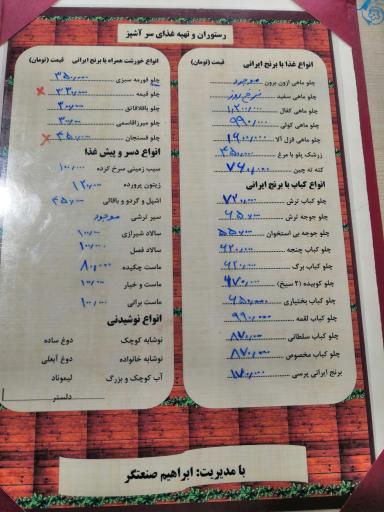 رستوران و تهیه غذای سر آشپز
انواع غذا با برنج ایرانی قیمت (تومان)
چلو ماهی ازون برون موجود
چلو ماهی سفید نرخ روز
چلو ماهی کفال ۱,۲۰۰/۰۰۰
چلو ماهی کولی ۹۹۰/۰۰۰
چلو ماهی قزل آلا
زرشک پلو با مرغ ۴۵۰/۰۰۰
کته ته چین ۷۶۰/۰۰۰
انواع کباب با برنج ایرانی
چلو کباب ترش ۷۲۰/۰۰۰
چلو جوجه ترش ۶۵۰/۰۰۰
چلو جوجه بی استخوان ۵۵۰/۰۰۰
چلو کباب چنجه ۶۲۰/۰۰۰
چلو کباب برگ ۶۲۰/۰۰۰
چلو کوبیده (۲ سیخ) ۴۷۰/۰۰۰
چلو کباب بختیاری ۶۵۰/۰۰۰
چلو کباب لقمه ۹۹۰/۰۰۰
چلو کباب سلطانی ۸۷۰/۰۰۰
چلو کباب مخصوص ۸۷۰/۰۰۰
برنج ایرانی پرسی ۱۸۰/۰۰۰
انواع خورشت همراه با برنج ایرانی قیمت (تومان)
چلو قورمه سبزی ۳۵۰/۰۰۰
چلو قیمه ۳۳۰/۰۰۰
چلو باقلاقاتق ۳۰۰/۰۰۰
چلو میرزاقاسمی ۳۰۰/۰۰۰
چلو فسنجان ۴۵۰/۰۰۰
انواع دسر و پیش غذا
سیب زمینی سرخ کرده ۱۰۰/۰۰۰
زیتون پرورده ۱۲۰/۰۰۰
اشپل و گردو و باقالی ۴۵۰/۰۰۰
سیر ترشی موجود
سالاد شیرازی ۱۰۰/۰۰۰
سالاد فصل ۱۰۰/۰۰۰
ماست چکیده ۸۰/۰۰۰
ماست و خیار ۱۰۰/۰۰۰
ماست برانی ۱۰۰/۰۰۰
انواع نوشیدنی
نوشابه کوچک دوغ ساده
نوشابه خانواده دوغ آبعلی
آب کوچک و بزرگ لیموناد
دلستر
با مدیریت: ابراهیم صنعتگر